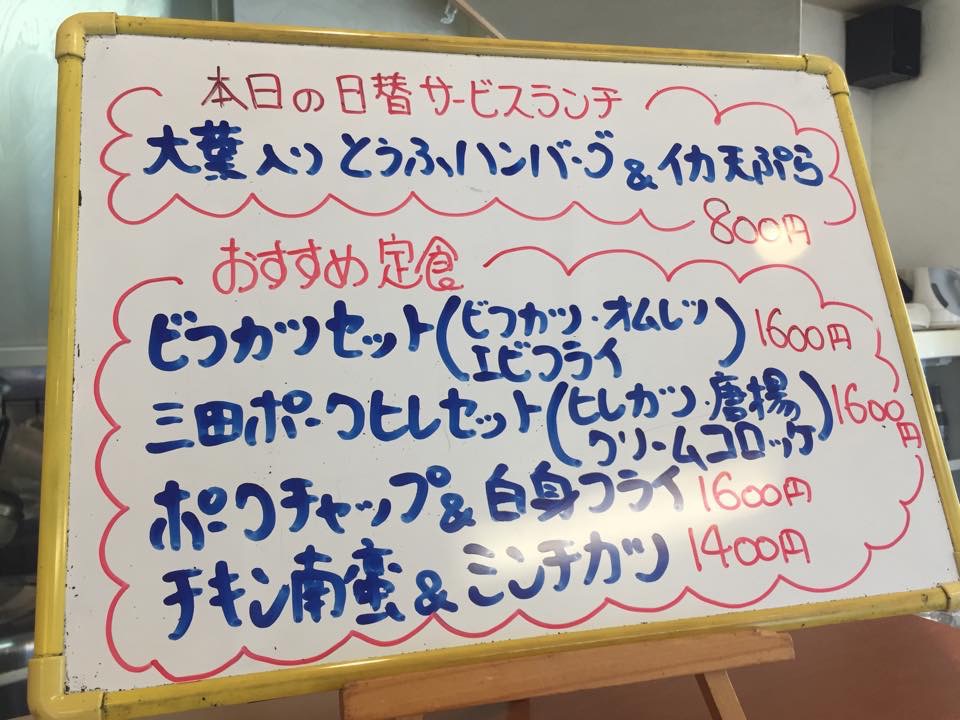 本日の日替サービスランチ
大葉入りとうふハンバーグ&イカ天ぷら
800円
おすすめ定食
ビフカツセット(ビフカツ・オムレツ 1600円
エビフライ)
三田ポークヒレセット(ヒレカツ・唐揚 1600円
クリームコロッケ)
ポークチャップ&白身フライ 1600円
チキン南蛮&ミンチカツ 1400円